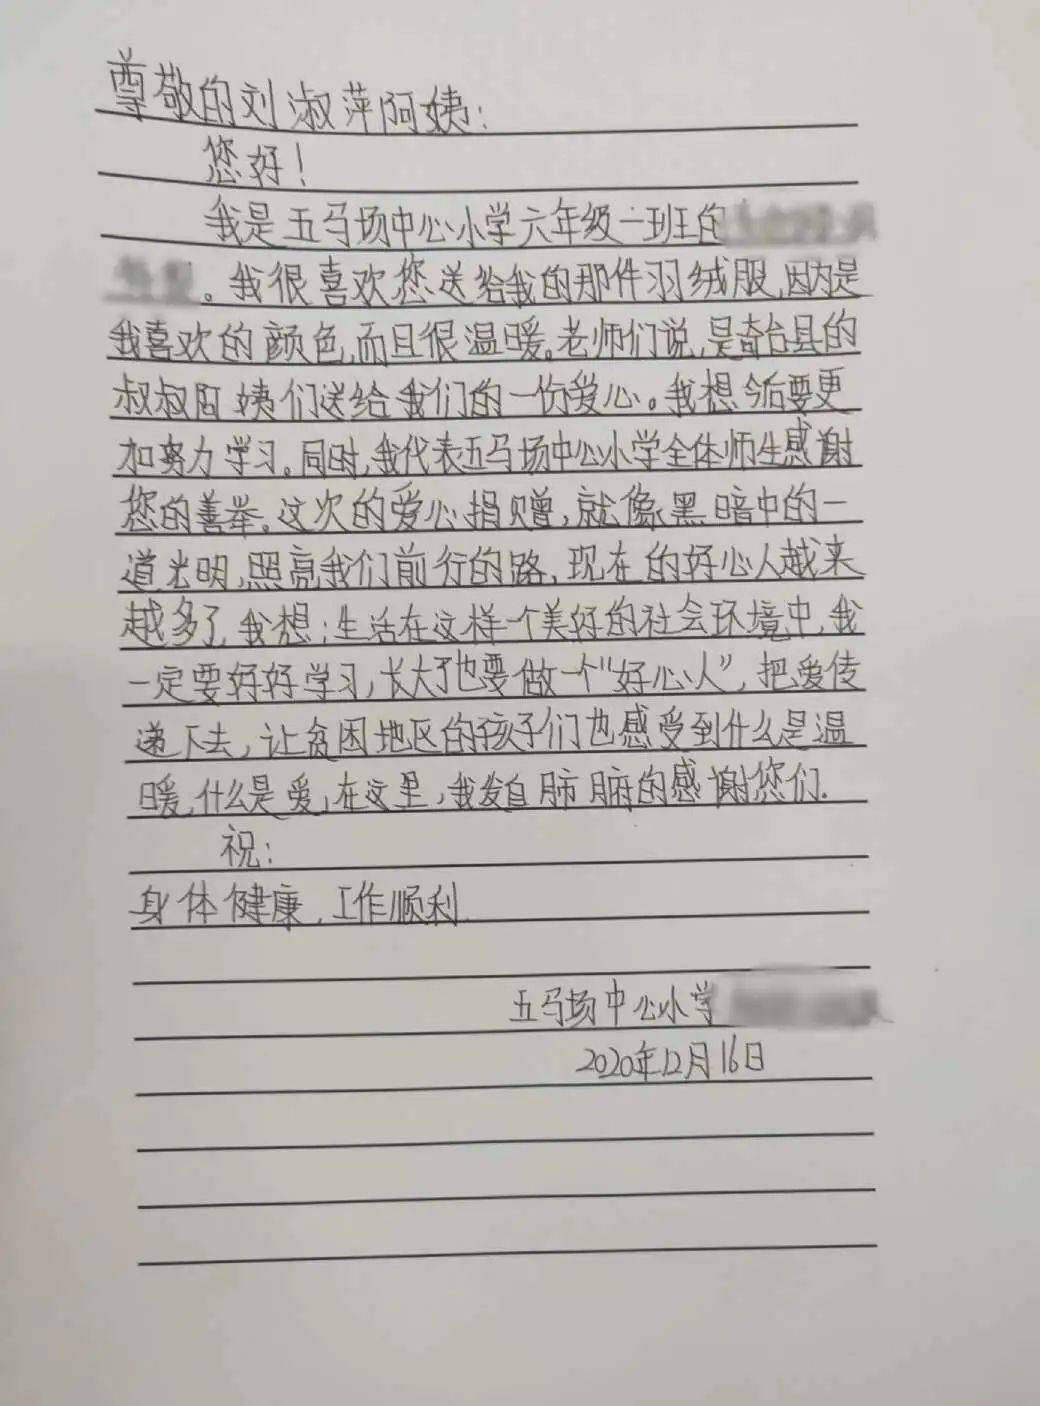 尊敬的刘淑萍阿姨：
您好！
我是五马场中心小学六年级一班的
。我很喜欢您送给我的那件羽绒服,因内是
我喜欢的颜色,而且很温暖。老师们说,是奇台县的
叔叔阿姨们送给我们的一份爱心。我想今后要更
加努力学习。同时,我代表五马场中心小学全体师生感谢
您的善举。这次的爱心捐赠,就像黑暗中的一
道光明,照亮我们前行的路,现在的好心人越来
越多了,我想:生活在这样一个美好的社会环境中,我
一定要好好学习,长大了也要做一个“好心人”,把爱传
递下去,让贫困地区的孩子们也感受到什么是温
暖,什么是爱,在这里,我发自肺腑的感谢您们.
祝:
身体健康,工作顺利.
五马场中心小学
2020年12月16日